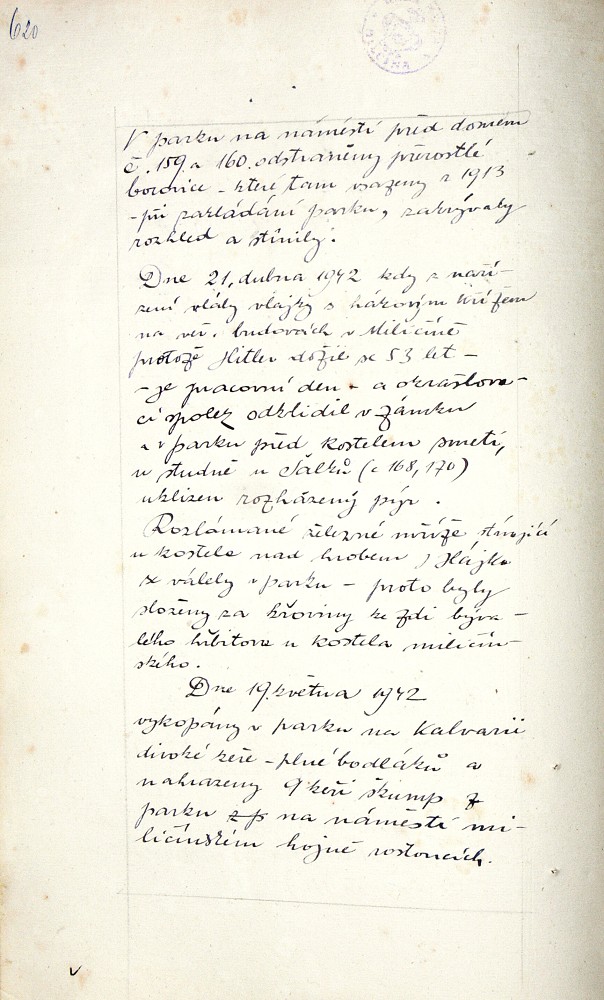 620
MILIČÍNA
V parku na náměstí před domem
č. 159 a 160 odstraněny přerostlé
borovice - které tam vsazeny r 1913
- při zakládání parku, zakrývaly
rozhled a stínily.
Dne 21. dubna 1942 kdy z naří-
zení vlády vlajky s hákovým křížem
na veř. budovách v Miličíně
protože Hitler dožil se 53 let -
- je pracovní den - a okrašlova-
cí spolek odklidil v zámku
a v parku před kostelem smetí,
u studně u Šálků (č 168, 170)
uklizen rozházený pýr.
Rozlámané železné mříže, stávající
u kostela nad hrobem J Hájka
se válely v parku - proto byly
složeny za křoviny ke zdi býva-
lého hřbitova u kostela miličín-
ského.
Dne 19. května 1942
vykopány v parku na Kalvarii
divoké keře - plné bodláků a
nahrazeny 9 keři škump z
parku z p na náměstí mi-
ličínském hojně rostoucích.
v